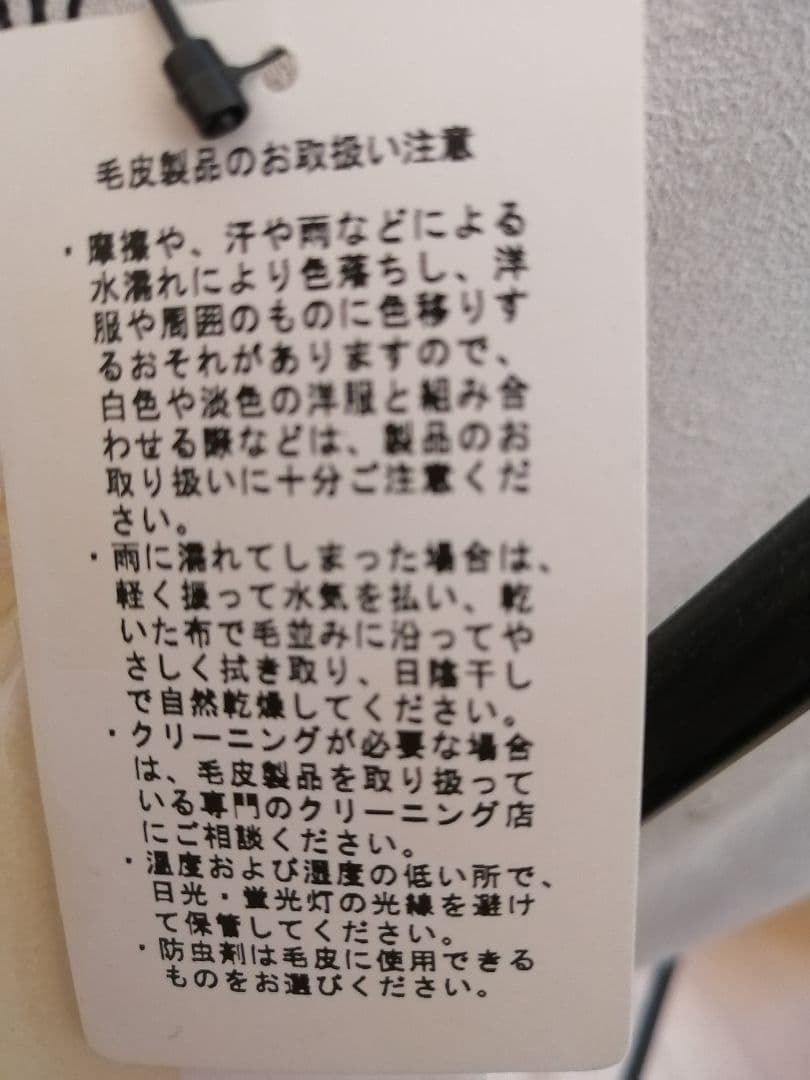 毛皮製品のお取扱い注意
・摩擦や、汗や雨などによる
水濡れにより色落ちし、洋
服や周囲のものに色移りす
るおそれがありますので、
白色や淡色の洋服と組み合
わせる際などは、製品のお
取り扱いに十分ご注意くだ
さい。
・雨に濡れてしまった場合は、
軽く振って水気を払い、乾
いた布で毛並みに沿ってや
さしく拭き取り、日陰干し
で自然乾燥してください。
・クリーニングが必要な場合
は、毛皮製品を取り扱って
いる専門のクリーニング店
にご相談ください。
・温度および湿度の低い所で、
日光・蛍光灯の光線を避け
て保管してください。
・防虫剤は毛皮に使用できる
ものをお選びください。